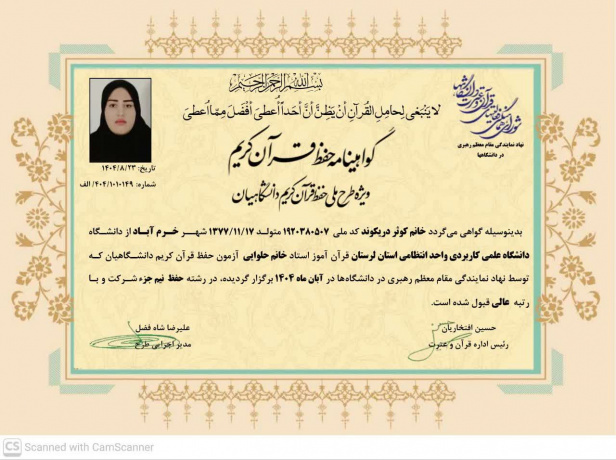 بسم الله الرحمن الرحیم
لایَنبَغی لِحامِلِ القُرآنِ أنْ یَظِنَّ أنَّ أحَداً اُعطیَ أفْضَلَ مِمّا اُعطیَ
نهاد نمایندگی مقام معظم رهبری
در دانشگاهها
گواهینامه حفظ قرآن کریم
ویژه طرح ملی حفظ قرآن کریم دانشگاهیان
تاریخ: ۱۴۰۴/۸/۲۳
شماره: ۴۰۴/۱۰۱-۱۴۹/ الف
بدینوسیله گواهی می‌گردد خانم کوثر دریکوند کد ملی ۱۹۲۰۳۸۰۵۰۷ متولد ۱۳۷۷/۱۱/۱۷ شهر خرم آباد از دانشگاه
دانشگاه علمی کاربردی واحد انتظامی استان لرستان قرآن آموز استاد خانم حلوایی آزمون حفظ قرآن کریم دانشگاهیان که
توسط نهاد نمایندگی مقام معظم رهبری در دانشگاه‌ها در آبان ماه ۱۴۰۴ برگزار گردیده، در رشته حفظ نیم جزء شرکت و با
رتبه عالی قبول شده است.
حسین افتخاریان
رئیس اداره قرآن و عترت
علیرضا شاه فضل
مدیر اجرایی طرح
CS Scanned with CamScanner